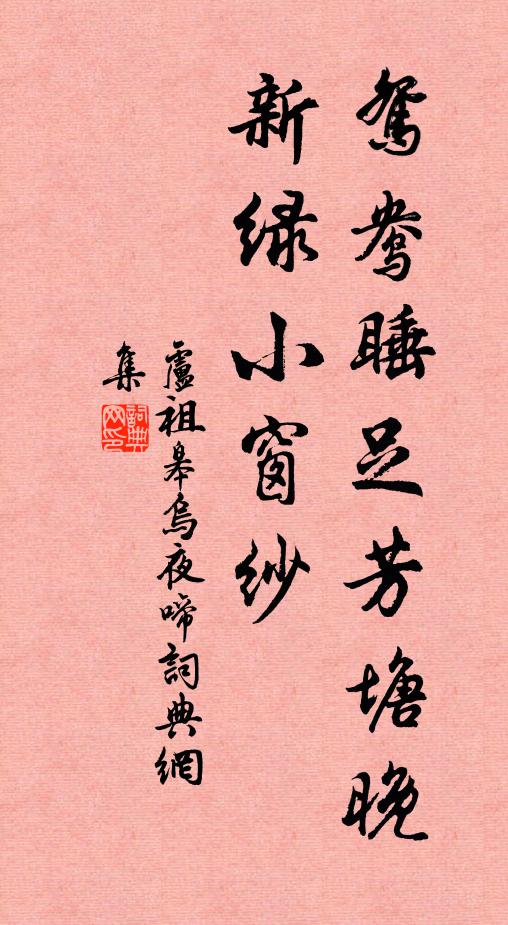 鴛鴦睡足芳塘晚
新绿小窗紗
盧祖皋烏夜啼詞典網
集
詞典网印